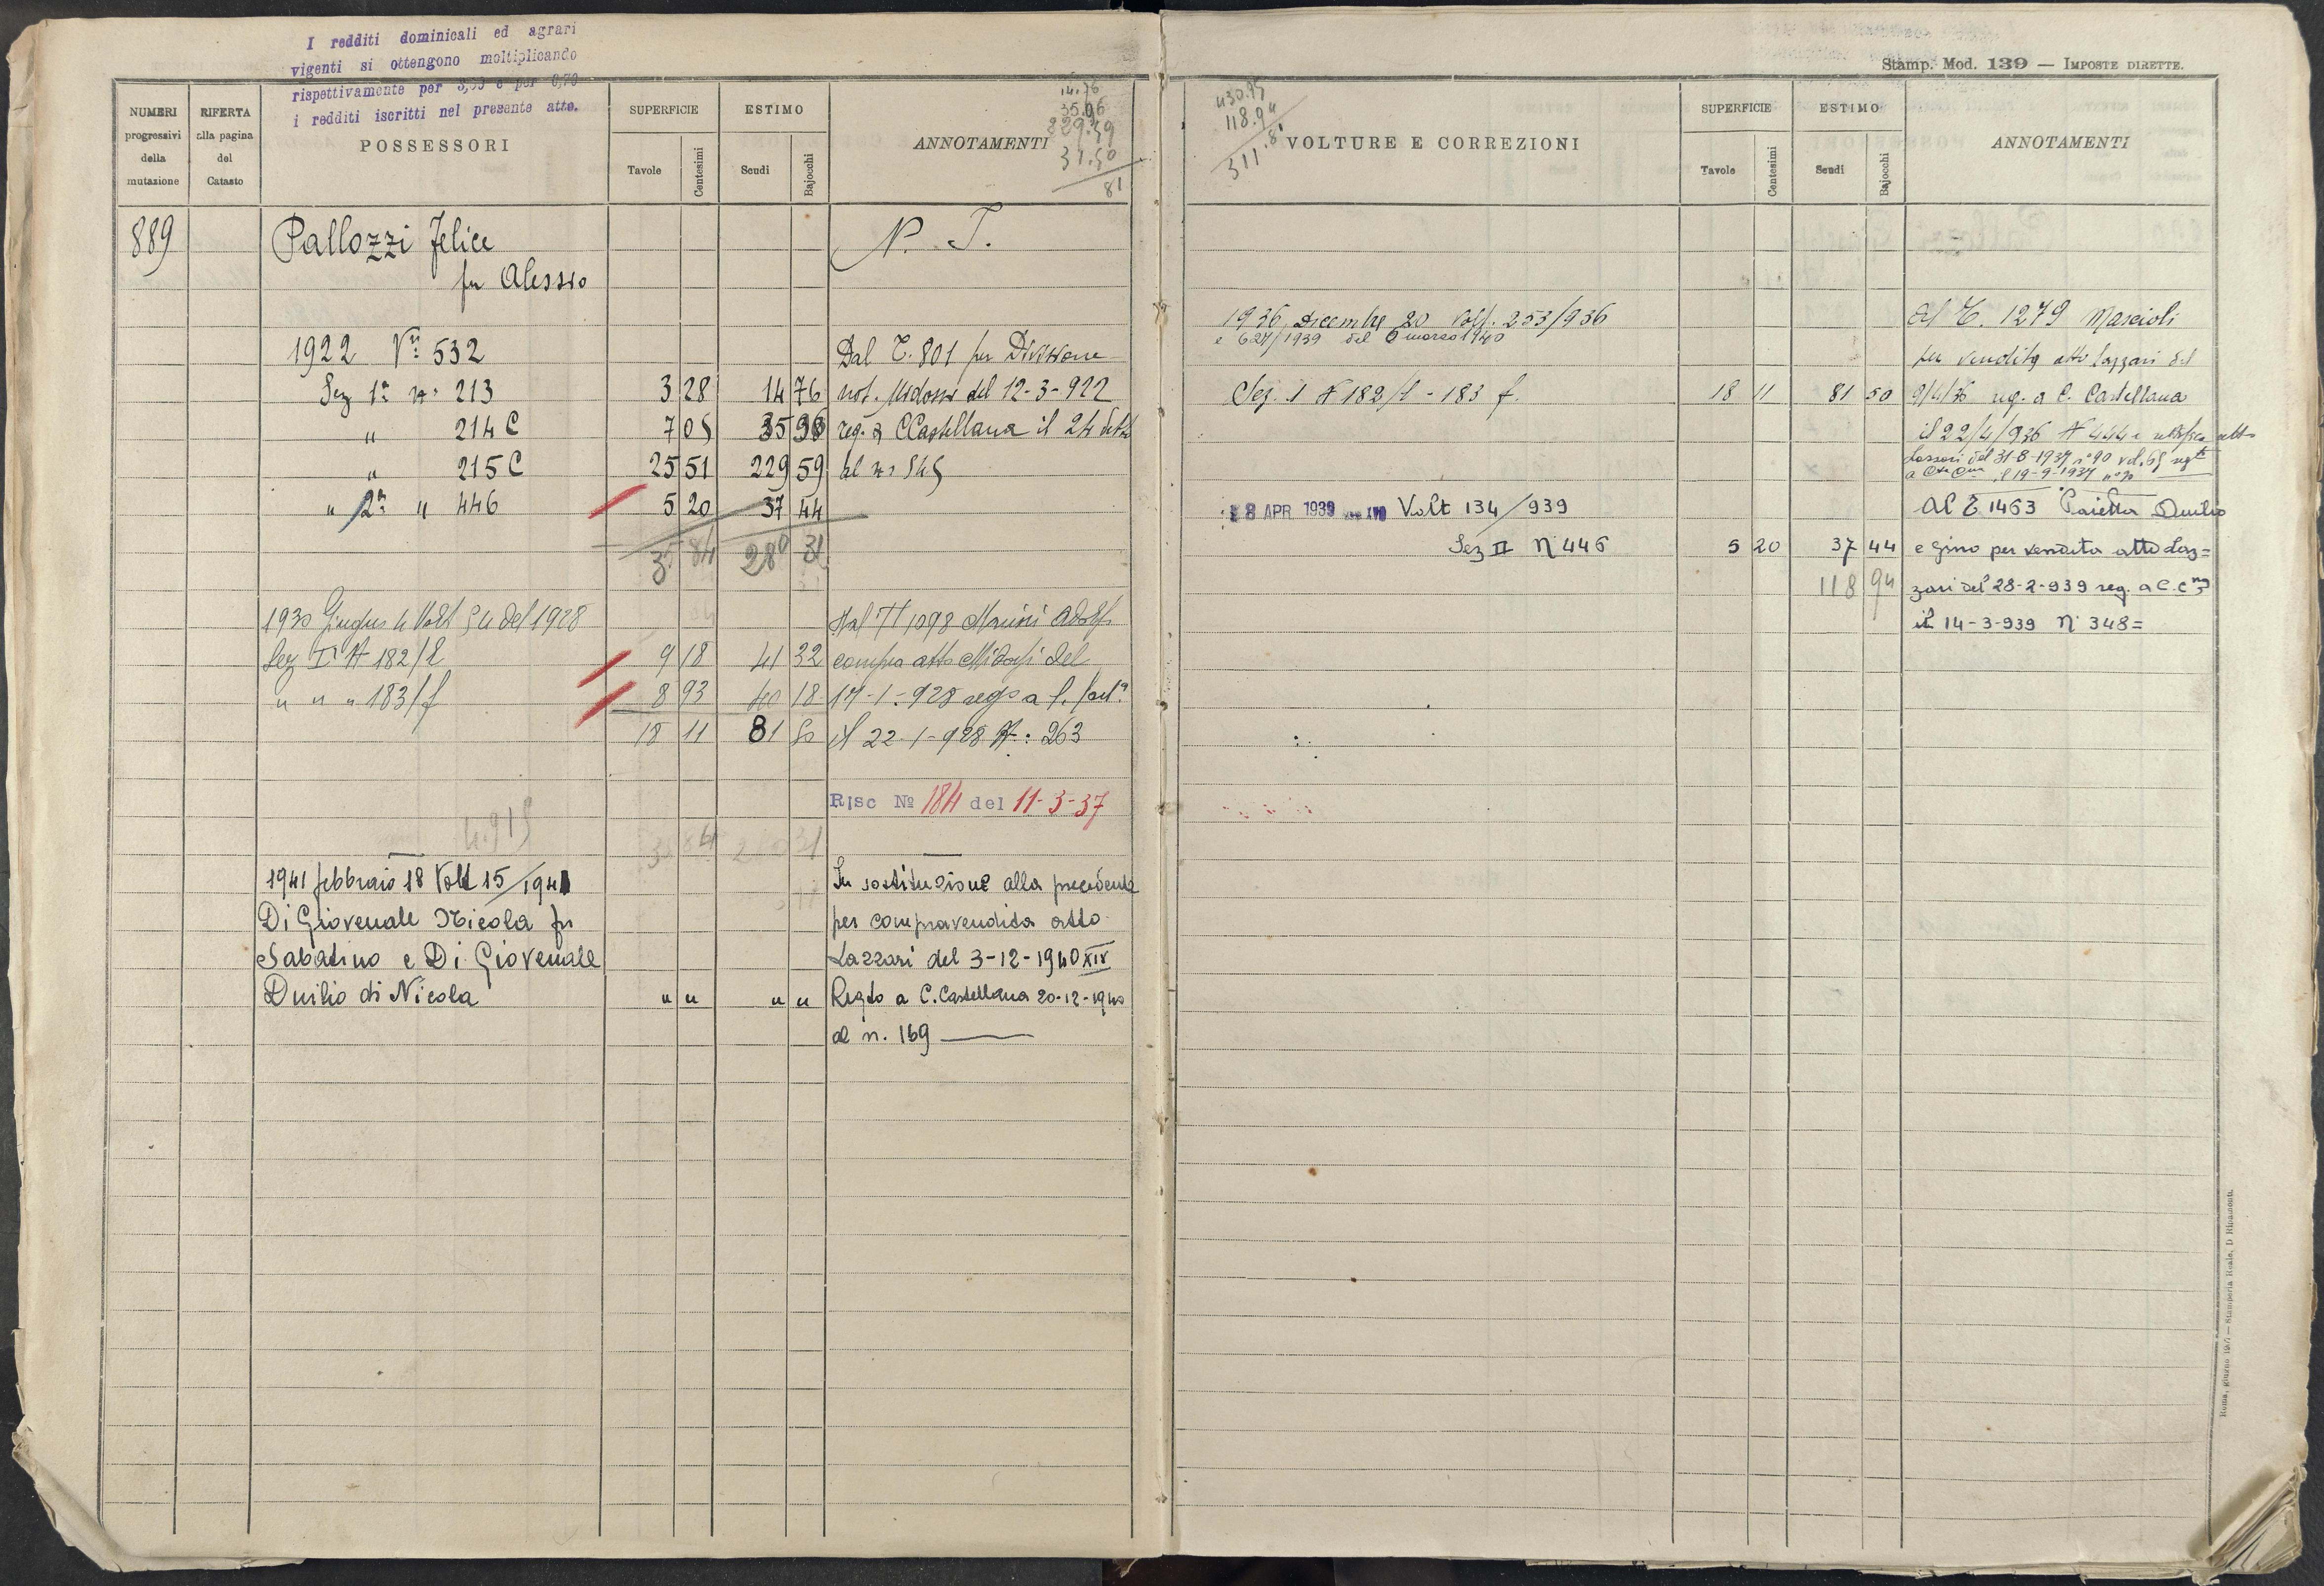 I redditi dominicali ed agrari
vigenti si ottengono moltiplicando
rispettivamente per e per
i redditi iscritti nel presente atto.
NUMERI progressivi della mutazione
RIFERTA alla pagina del Catasto
POSSESSORI
SUPERFICIE
Tavole Centesimi
ESTIMO
Scudi Bajocchi
ANNOTAMENTI
14.76
35.96
229.59
31.50
81
889 Pallozzi Felice N. T.
fu Alessio
1922 Vra 532 Dal T. 801 per Divisione
Sez 1a n. 213 3 28 14 76 not. Midossi del 12-3-922
" 214 C 7 05 35 96 reg. a C Castellana il 24 detto
" 215 C 25 51 229 59 al n. 545
" 2a " 446 5 20 37 44
35 84 280 31
1930 Giugno 4 Volt 54 del 1928 Dal T 1098 Marini Adolfo
Sez I N 182/1 9 18 41 32 compra atto Midossi del
" " " 183/f 8 93 40 18 17-1-928 rego a C. Cast.a
18 11 81 50 il 22-1-928 N: 263
Risc No 184 del 11-3-37
4.915
35 84 280 31
1941 febbraio 18 Volt 15/1941 In sostituzione alla precedente
Di Giovenale Nicola fu per compravendita atto
Sabatino e Di Giovenale Lazzari del 3-12-1940 XIX
Duilio di Nicola " " " " Regto a C. Castellana 20-12-1940
al n. 169
Stamp. Mod. 139 — IMPOSTE DIRETTE.
430.95
118.94
311.81
VOLTURE E CORREZIONI
SUPERFICIE
Tavole Centesimi
ESTIMO
Scudi Bajocchi
ANNOTAMENTI
1936, Dicembre 20 Volt. 253/936 Al T. 1279 Mascioli
e 627/1939 del 6 marzo 1940
per vendita atto Lazzari del
Sez. I N 182/1 - 183 f. 18 11 81 50 9/4/36 reg. a C. Castellana
il 22/4/936 N 444 e rettifica atto
Lazzari del 31-8-1937 n° 90 vol. 65 regto
a il 19-9-1937
8 APR 1939 XVII Volt 134/939 Al T 1463 Paietta Duilio
Sez II N 446 5 20 37 44 e Gino per vendita atto Laz=
118 94 zari del 28-2-939 reg. a C. Cna
il 14-3-939 N 348=
Roma, giugno — Stamperia Reale, D Ripamonti.